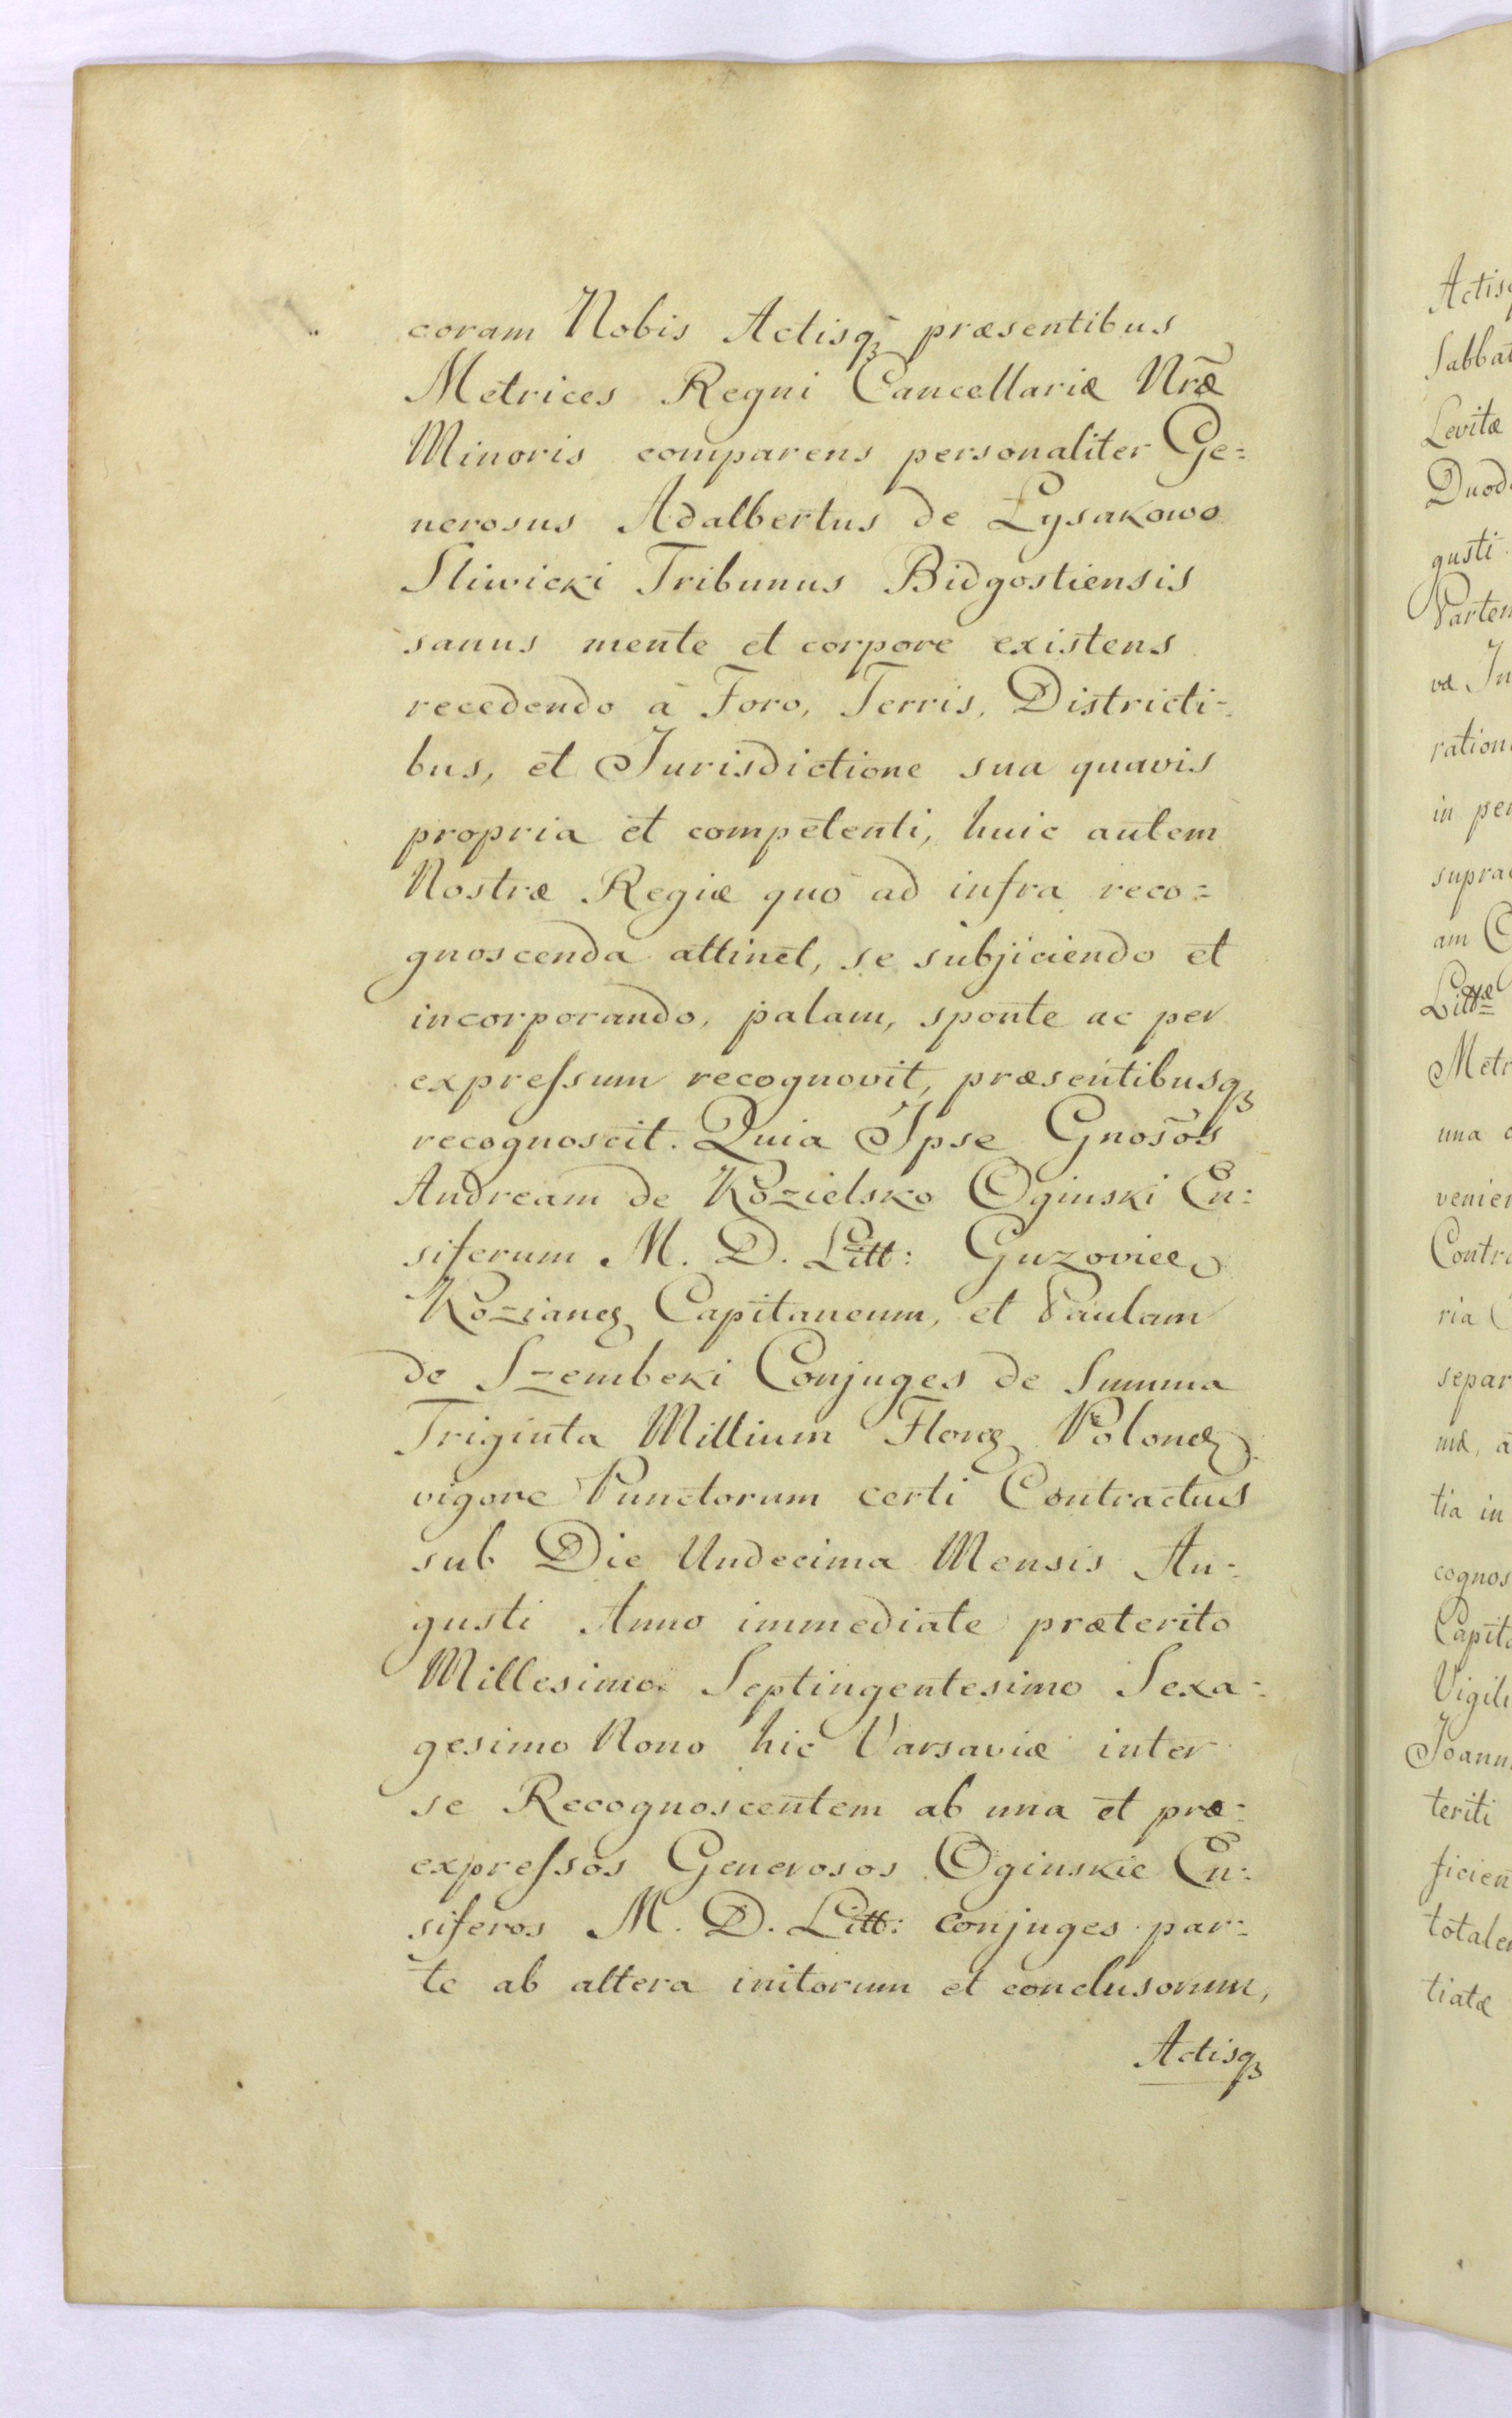 coram Nobis Actisq præsentibus
Metrices Regni Cancellariæ Nræ
Minoris comparens personaliter Ge=
nerosus Adalbertus de Lysakowo
Sliwicki Tribunus Bidgostiensis
sanus mente et corpore existens
recedendo à Foro, Terris, Districti=
bus, et Jurisdictione sua quavis
propria et competenti, huic autem
Nostræ Regiæ quo ad infra reco=
gnoscenda attinet, se subjiciendo et
incorporando, palam, sponte ac per
expreſsum recognovit, præsentibusq
recognoscit. Quia Ipse Gnosos
Andream de Kozielsko Oginski En:
siferum M. D. Litt: Guzoviee
Kozianę Capitaneum, et Paulam
de Szembeki Conjuges de Summa
Triginta Millium Florę Polonę
vigore Punctorum certi Contractus
sub Die Undecima Mensis Au=
gusti Anno immediate præterito
Millesimo Septingentesimo Sexa=
gesimo Nono hic Varsaviæ inter
se Recognoscentem ab una et præ=
expreſsos Generosos Oginskie En:
siferos M. D. Litt: Conjuges par=
te ab altera initorum et conclusorum,
Actisq
Actisq
Sabbat
Levitæ
Duod
gusti
Partem
væ In
ration
in per
supra
am C
Littæ
Metr
una
venien
Contra
ria
separ
mæ, a
tia in
cognos
Capita
Vigili
Joann
teriti
ficien
totale
tiatæ